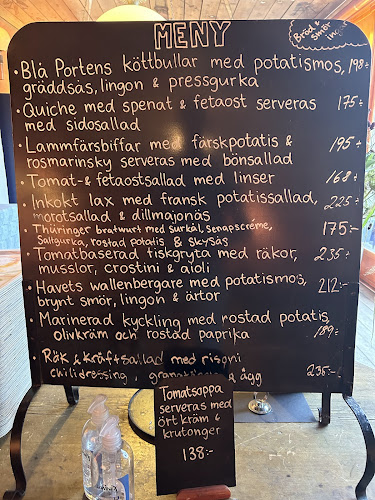 MENY
Bröd &
Smör
in
• Blå Portens köttbullar med potatismos, 198:-
gräddsås, lingon & pressgurka
• Quiche med spenat & fetaost serveras 175:-
med sidosallad
• Lammfärsbiffar med färskpotatis & 195:-
rosmarinsky serveras med bönsallad
• Tomat-& fetaostsallad med linser 168:-
• Inkokt lax med fransk potatissallad, 225:-
morotsallad & dillmajonäs
• Thüringer bratwurst med surkål, senapscréme, 175:-
Saltgurka, rostad potatis & skysås
• Tomatbaserad fiskgryta med räkor, 235:-
musslor, crostini & aioli
• Havets wallenbergare med potatismos, 212:-
brynt smör, lingon & ärtor
• Marinerad kyckling med rostad potatis
olivkräm och rostad paprika 189:-
• Räk & kräftsallad med risoni
chilidressing, ägg 235:-
Tomatsoppa
serveras med
ört kräm &
krutonger
138:-